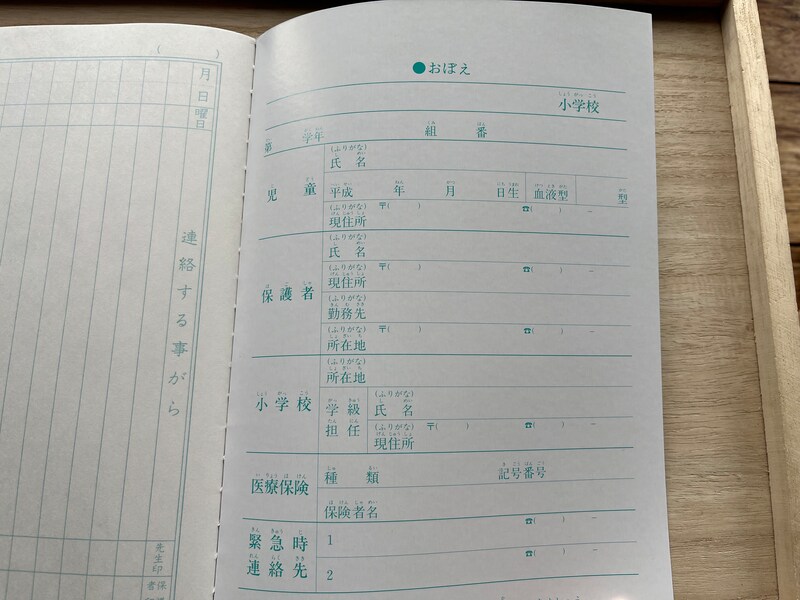 ( )
月
日
曜日
連絡する事がら
先生印
●おぼえ
小学校 しょう がっ こう
第 学年 組 番
児童
(ふりがな)
氏名
平成 年 月 日生 血液型 型
(ふりがな) 〒( ) ☎( ) −
現住所
保護者
(ふりがな)
氏名
(ふりがな) 〒( ) ☎( ) −
現住所
(ふりがな)
勤務先
(ふりがな) 〒( ) ☎( ) −
所在地
小学校
(ふりがな)
所在地
学級担任
(ふりがな)
氏名
(ふりがな) 〒( ) ☎( ) −
現住所
医療保険
種類 記号番号
保険者名
緊急時連絡先
1 ☎( ) −
2 ☎( ) −